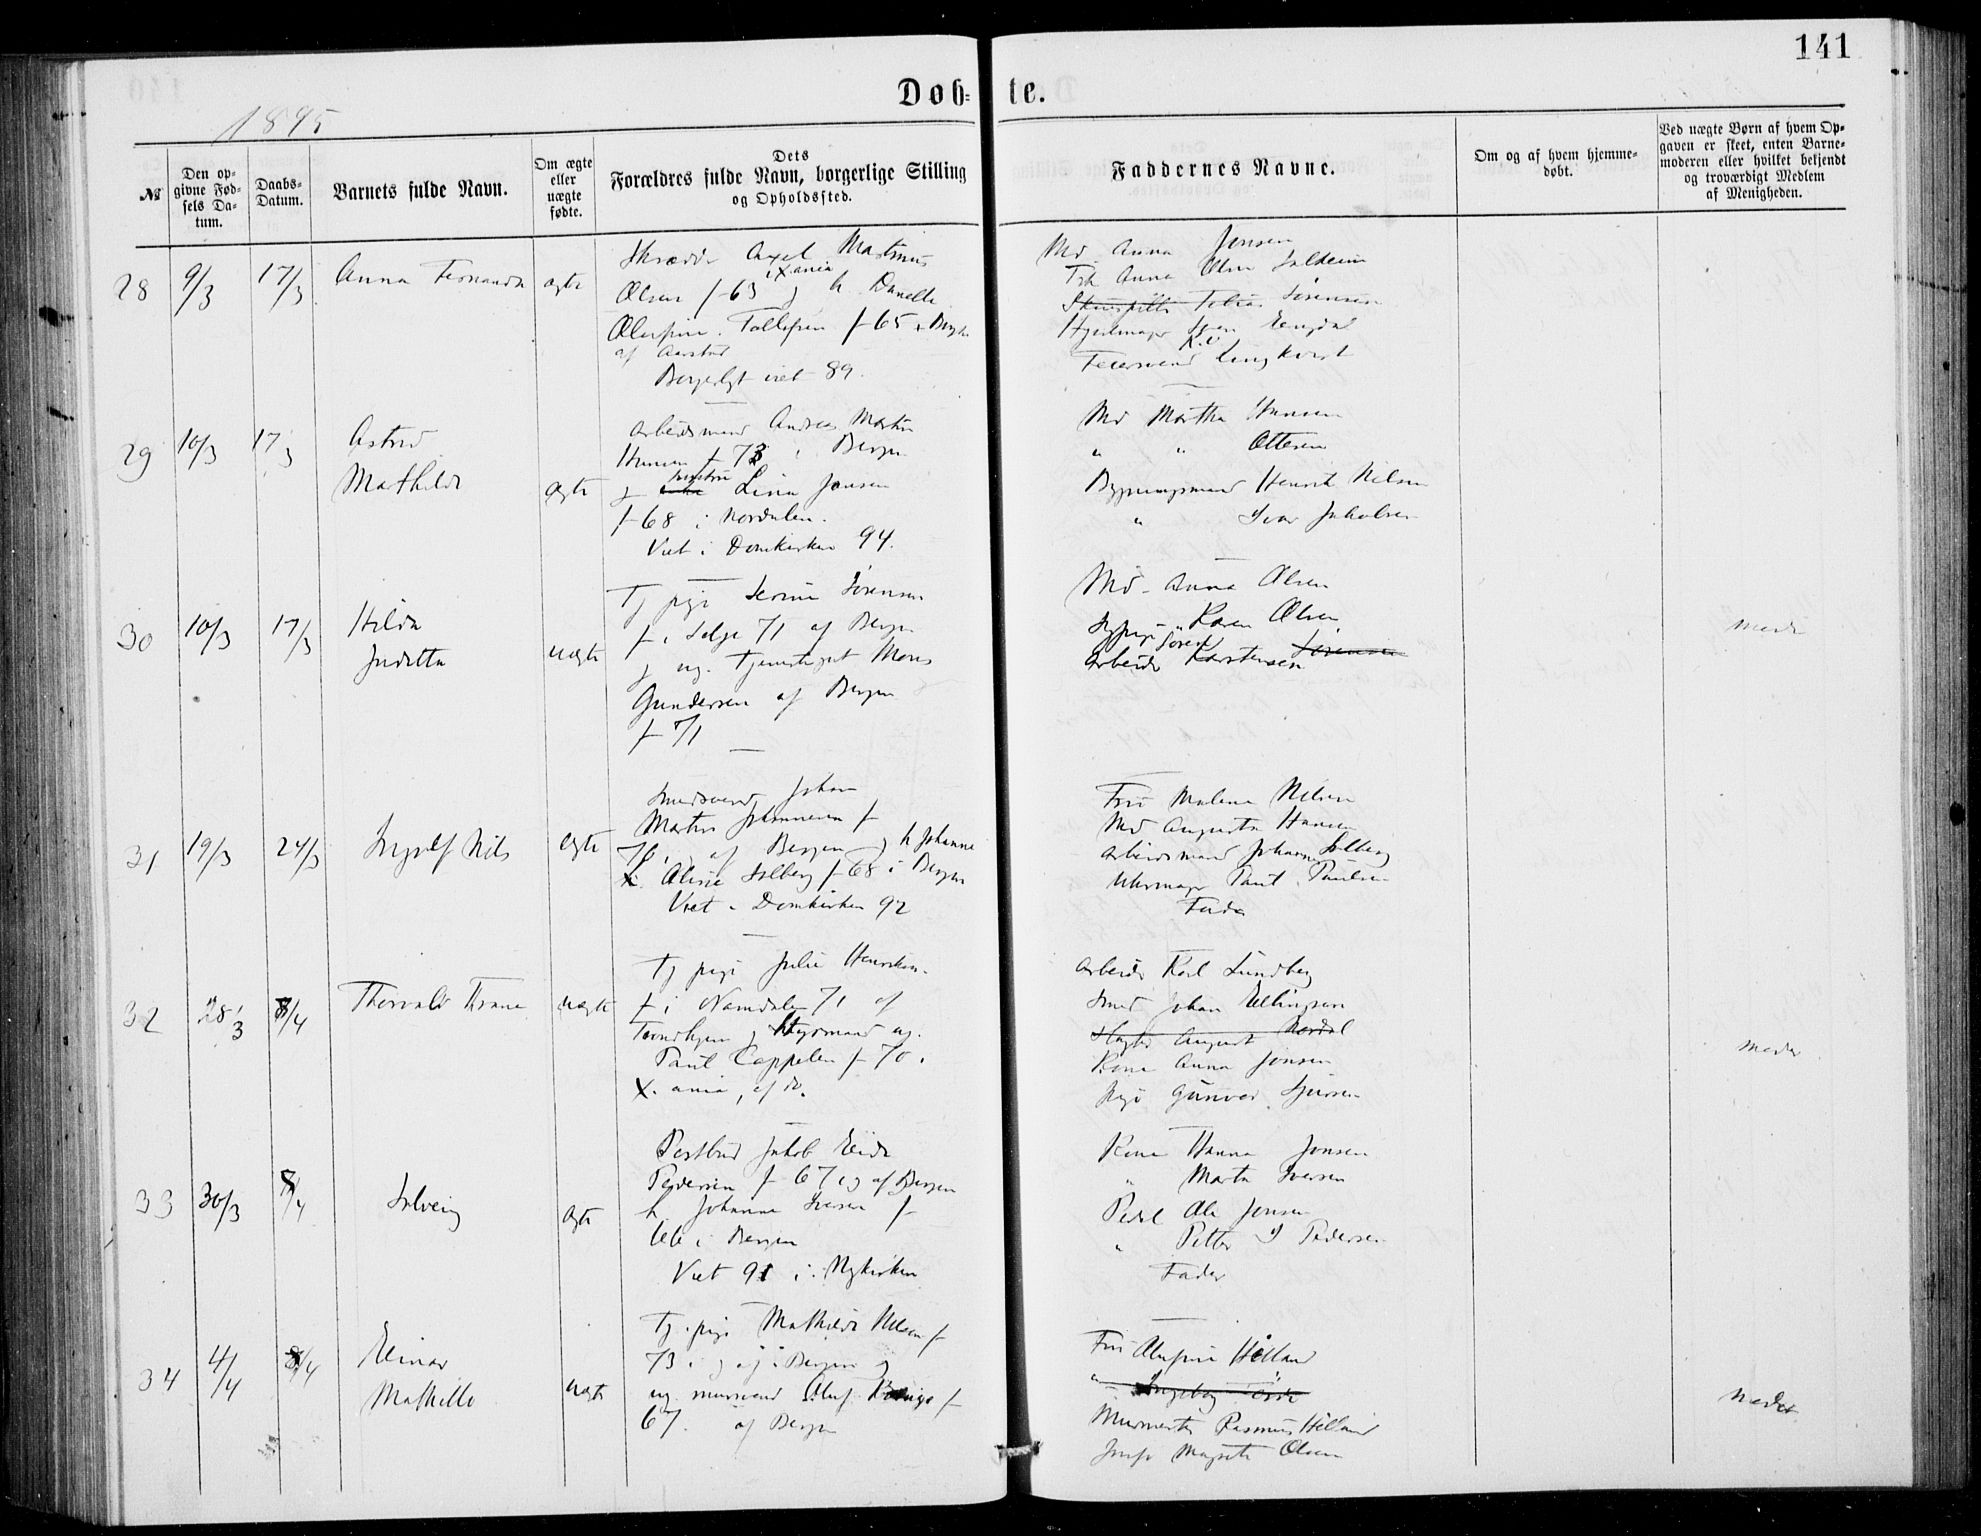 141
Døb= te.
1895
№
Den op=
givne Fød=
sels Da=
tum.
Daabs=
Datum.
Barnets fulde Navn.
Om ægte
eller
uægte
fødte.
Dets
Forældres fulde Navn, borgerlige Stilling
og Opholdssted.
Faddernes Navne.
Om og af hvem hjemme=
døbt.
Ved uægte Børn af hvem Op=
gaven er skeet, enten Barne=
moderen eller hvilket bekjendt
og troværdigt Medlem
af Menigheden.
28 9/3 17/3 Anna Fernanda ægte
Axel Martinus
Olsen f 63 i X.ania g h Danelle
Tollefsen f 65 Bergen
af Aarstad
Borgerligt viet 89.
Md. Anna Jensen
Anna Olsen
Tobias Sørensen
Sven Engdal
29 10/3 17/3 Astrid
Mathilde ægte
Arbeidsmand Andreas Martin
Hansen f 73 i Bergen
g Lina Jonsen
f 68 i Nordalen.
Viet i Domkirken 94.
Md Martha Hansen
" " Ottesen
Henrik Nilsen
" Ivar Jakobsen
30 10/3 17/3 Hilda
Judetta uægte
Tj pige Serine Sørensen
f. i Selje 71 af Bergen
g ug. Mons
Gundersen af Bergen
f 71
Md. Anna Olsen
Sypige Karen Olsen
Arbeider Søren Karstensen Sørensen
Moder
31 19/3 24/3 Nils ægte
Smedsvend Johan
Martin Johannesen f
70 i g af Bergen g h Johanne
Solberg f 68 i Bergen
Viet i Domkirken 92
Fru Malene Nilsen
Md Augusta Hansen
Arbeidsmand Johannes Solberg
Uhrmager Paul Paulsen
Fader
32 28/3 8/4 Thorvald Krane uægte
Tj pige Julie Henriksen
f i Namdalen 71 af
Trondhjem g Styrmand ug.
Paul Cappelen f 70 i
X.ania, af do.
Arbeider Karl Lundberg
Smed Johan Ellingsen
August
Kone Anna Jensen
Pige Gunvor Sjursen
Moder
33 30/3 8/4 Solveig ægte
Postbud Jakob Eide
Pedersen f 67 i g af Bergen
h Johanne Iversen f
66 i Bergen
Viet 91 i Nykirken
Kone Hanna Jonsen
" Marta Iversen
Ole Jonsen
" Petter J Pedersen
Fader
34 4/4 8/4 Einar
uægte
Tj. pige Mathilde Nilsen f
73 i g af i Bergen g
ug. mursvend
67. af Bergen
Fru Helland
" Ingeborg
Murmester Rasmus Helland
Olsen
Moder